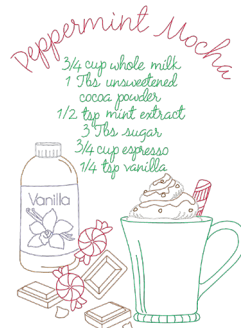 Peppermint Mocha
3/4 cup whole milk
1 Tbs unsweetened
cocoa powder
1/2 tsp mint extract
3 Tbs sugar
3/4 cup espresso
1/4 tsp vanilla
Vanilla